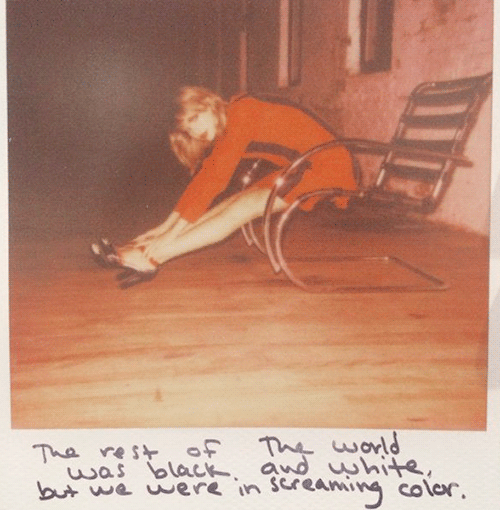 The rest of The world
was black and white,
but we were in screaming color.